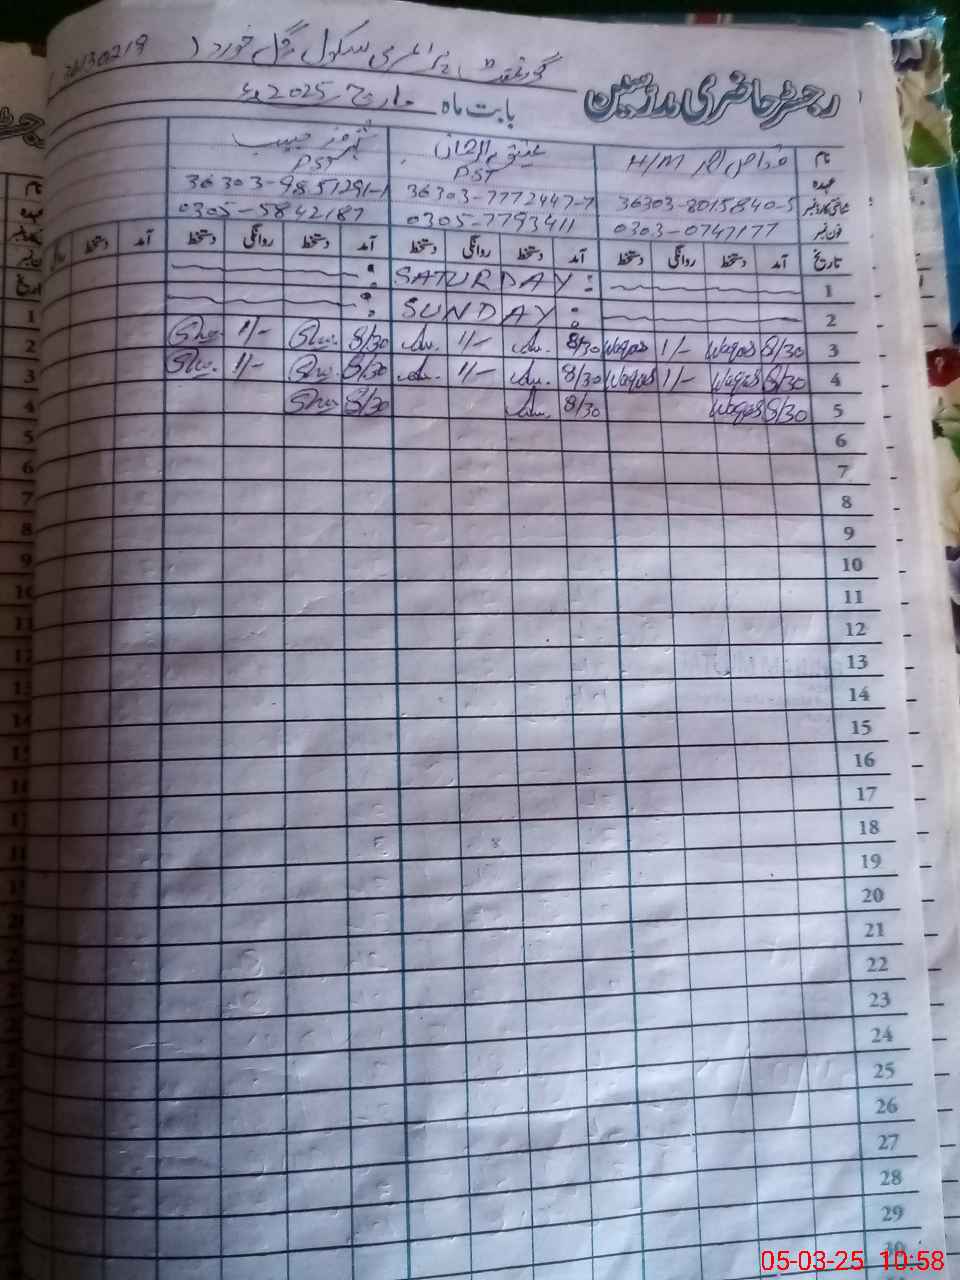 گورنمنٹ پرائمری سکول گل خورد (36130219
رجسٹر حاضری مدرسین
بابت ماہ مارچ 2025ء
نام وقاص H/M عتیق الرحمان حبیب
عہدہ PST PST
شناختی کارڈ نمبر 36303-8015840-5 36303-7772447-7 36303-9851291-1
فون نمبر 0303-0747177 0305-7793411 0305-5842187
تاریخ آمد دستخط روانگی دستخط آمد دستخط روانگی دستخط آمد دستخط روانگی دستخط آمد دستخط
1 SATURDAY :
2 SUNDAY :
3 8/30 Waqas 1/- Waqas 8/30 1/- 8/30 1/-
4 8/30 Waqas 1/- Waqas 8/30 1/- 8/30 1/-
5 8/30 Waqas 8/30 8/30
6
7
8
9
10
11
12
13
14
15
16
17
18
19
20
21
22
23
24
25
26
27
28
29
30
05-03-25 10:58